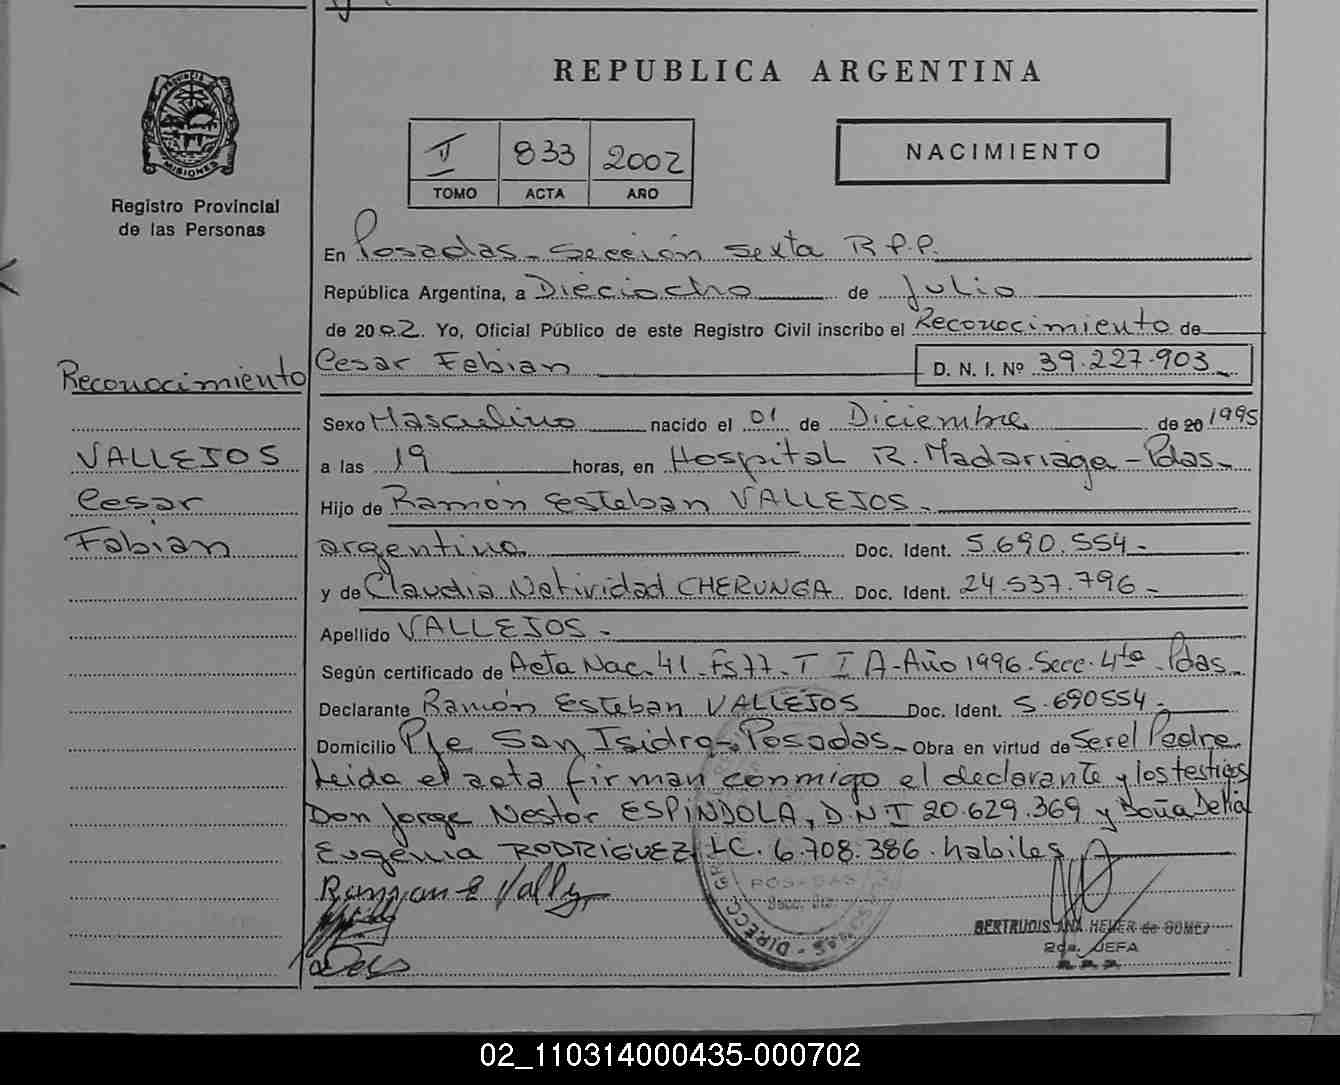 REPUBLICA ARGENTINA
PROVINCIA DE MISIONES
Registro Provincial
de las Personas
II 833 2002
TOMO ACTA AÑO
NACIMIENTO
En Posadas - Sección Sexta R.P.P.
República Argentina, a Dieciocho de Julio
de 2002. Yo, Oficial Público de este Registro Civil inscribo el Reconocimiento de
Cesar Fabian D. N. I. Nº 39.227.903
Reconocimiento
VALLEJOS
Cesar
Fabian
Sexo Masculino nacido el 01 de Diciembre de 20 1995
a las 19 horas, en Hospital R. Madariaga - Pdas.
Hijo de Ramón Esteban VALLEJOS.
argentino. Doc. Ident. 5.690.554.
y de Claudia Natividad CHERUNGA Doc. Ident. 24.537.796.
Apellido VALLEJOS.
Según certificado de Acta Nac. 41. Fs 77. T I A - Año 1996. Secc. 4ta. Pdas.
Declarante Ramón Esteban VALLEJOS Doc. Ident. 5.690554.
Domicilio Pje San Isidro - Posadas. Obra en virtud de Ser el Padre.
Leida el acta firman conmigo el declarante y los testigos
Don Jorge Nestor ESPINDOLA, D.N.I 20.629.369 y Doña Delia
Eugenia RODRIGUEZ LC. 6.708.386. habiles.
Ramon E Vallej
POSADAS
DIRECC. GR
GERTRUDIS ANA HEYER de GOMEZ
2da. JEFA
R.P.P.
02_110314000435-000702